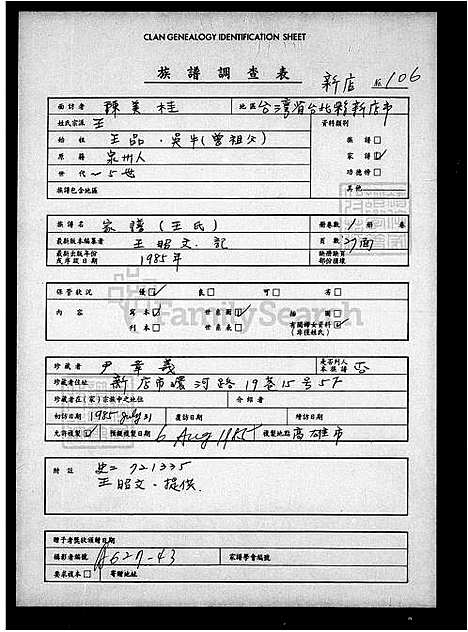 CLAN GENEALOGY IDENTIFICATION SHEET
族譜調查表
新店 № 106
面訪者 陳美桂 地區 台灣省台北縣新店市
姓氏宗派 王 資料類別
始祖 王品.吳牛(曾祖父) 族譜□
原籍 泉州人 家譜☑
世代 一~5世 功德榜□
族譜包含地區 其他
族譜名 家譜(王氏) 冊卷數 1冊 卷
最新版本編纂者 王昭文.記 頁數 27面
最新出版年份或序跋日期 1985年 缺冊缺頁部份損壞
保管狀況 優☑ 良□ 可□ 劣□
內容 寫本☑ 世系圖☑ 插圖□
刊本□ 世系表□ 有關譜系資料☑ (非僅姓氏)
FamilySearch
珍藏者 尹章義 是否列入本族譜 否
珍藏者住址 新店市環河路19巷15号5F
珍藏者在(家)宗族中之地位 介紹者
初訪日期 1985 July 31 復訪日期 續訪日期
允許複製☑ 預擬複製日期 6 Aug 1985 複製地點 高雄市
附註 史=721335
王昭文.提供.
贈予者獎狀頒贈日期
攝影者編號 A627-43 家譜學會編號
要求複本□ 寄贈地址